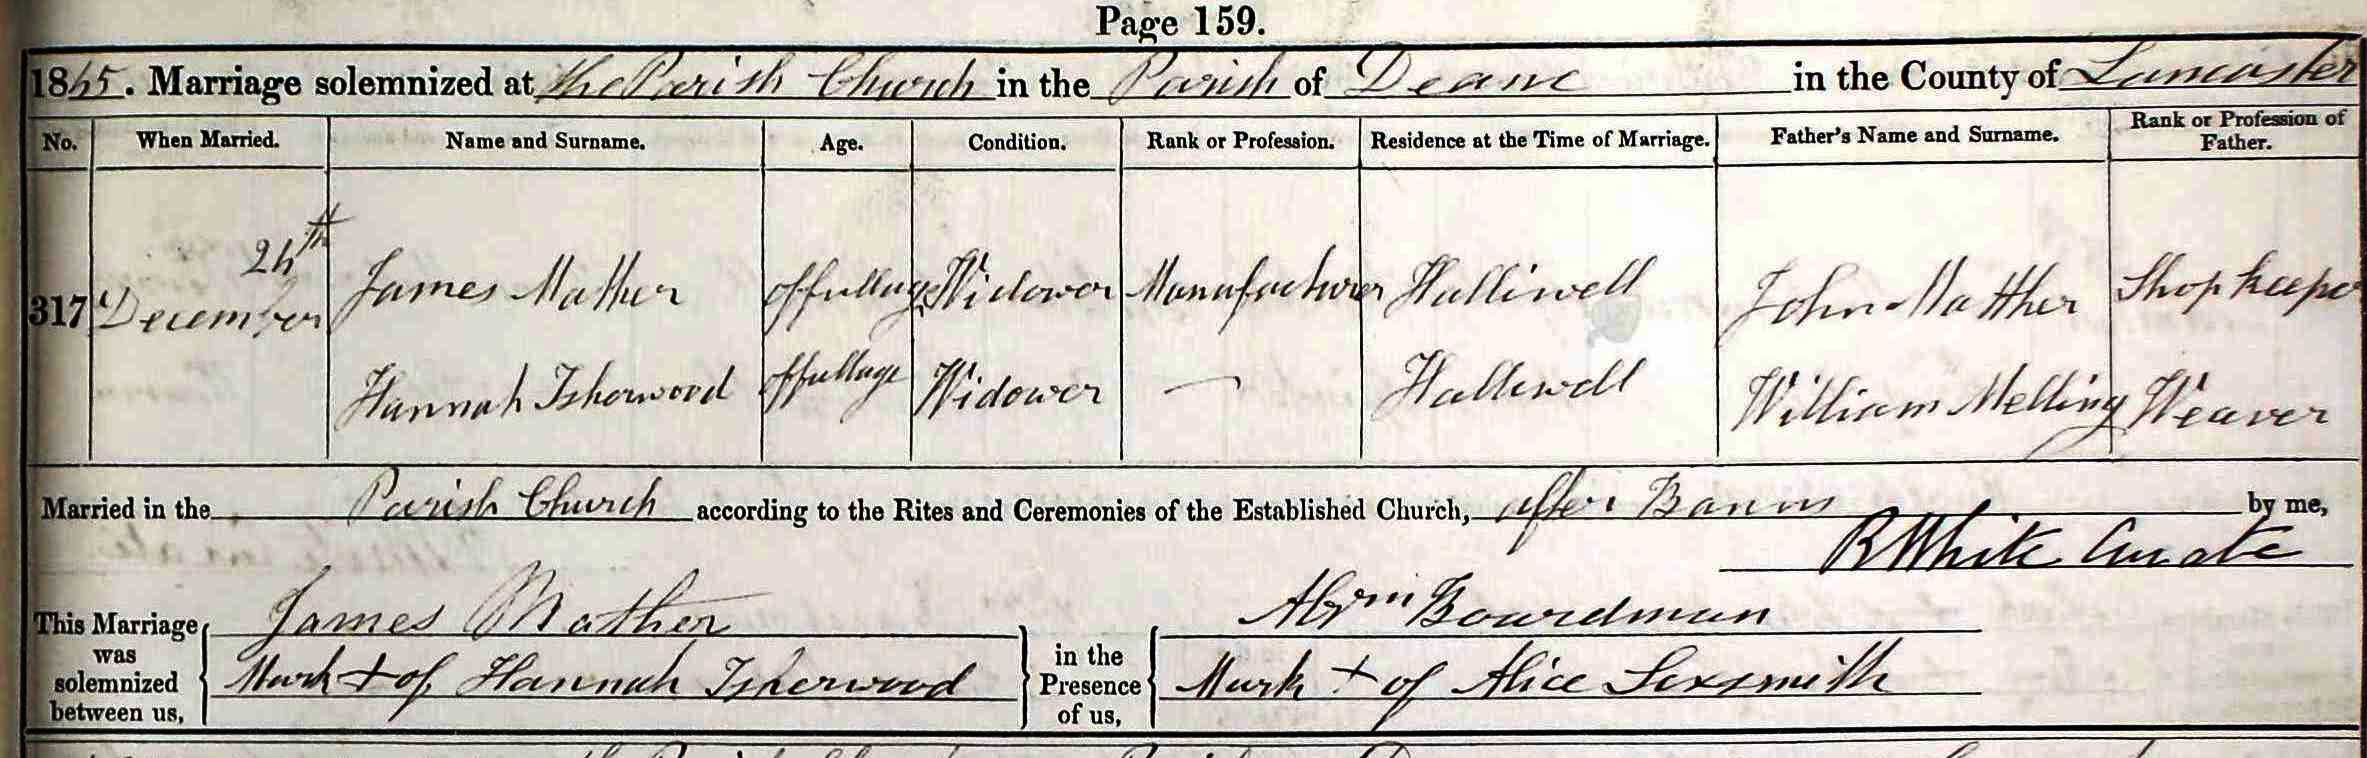 Page 159.
1845. Marriage solemnized at the Parish Church in the Parish of Deane in the County of Lancaster
No. When Married. Name and Surname. Age. Condition. Rank or Profession. Residence at the Time of Marriage. Father's Name and Surname. Rank or Profession of Father.
317 24th December James Mather of full age Widower Manufacturer Halliwell John Mather Shopkeeper
Hannah Isherwood of full age Widower — Halliwell William Melling Weaver
Married in the Parish Church according to the Rites and Ceremonies of the Established Church, after Banns by me,
R White Curate
This Marriage was solemnized between us,
James Mather
Mark + of Hannah Isherwood
in the Presence of us,
Abrm Boardman
Mark + of Alice Sexsmith